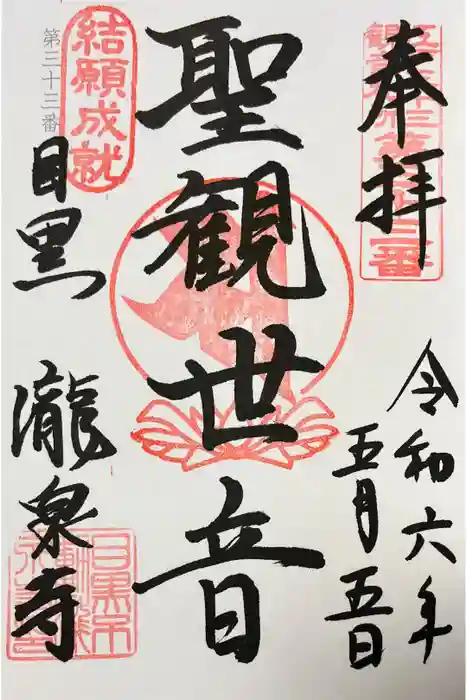 奉拝
令和六年
五月五日
聖観世音
結願成就
第三十三番
目黒
瀧泉寺